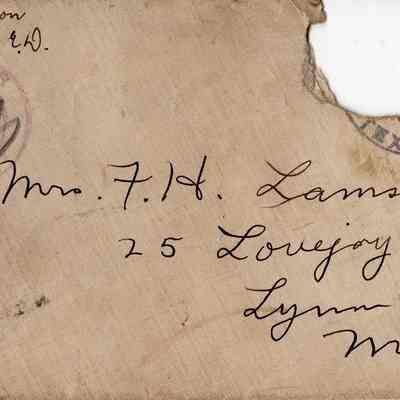 on
E.D.
TEX
Mrs. F. H. Lams
25 Lovejoy
Lynn
M